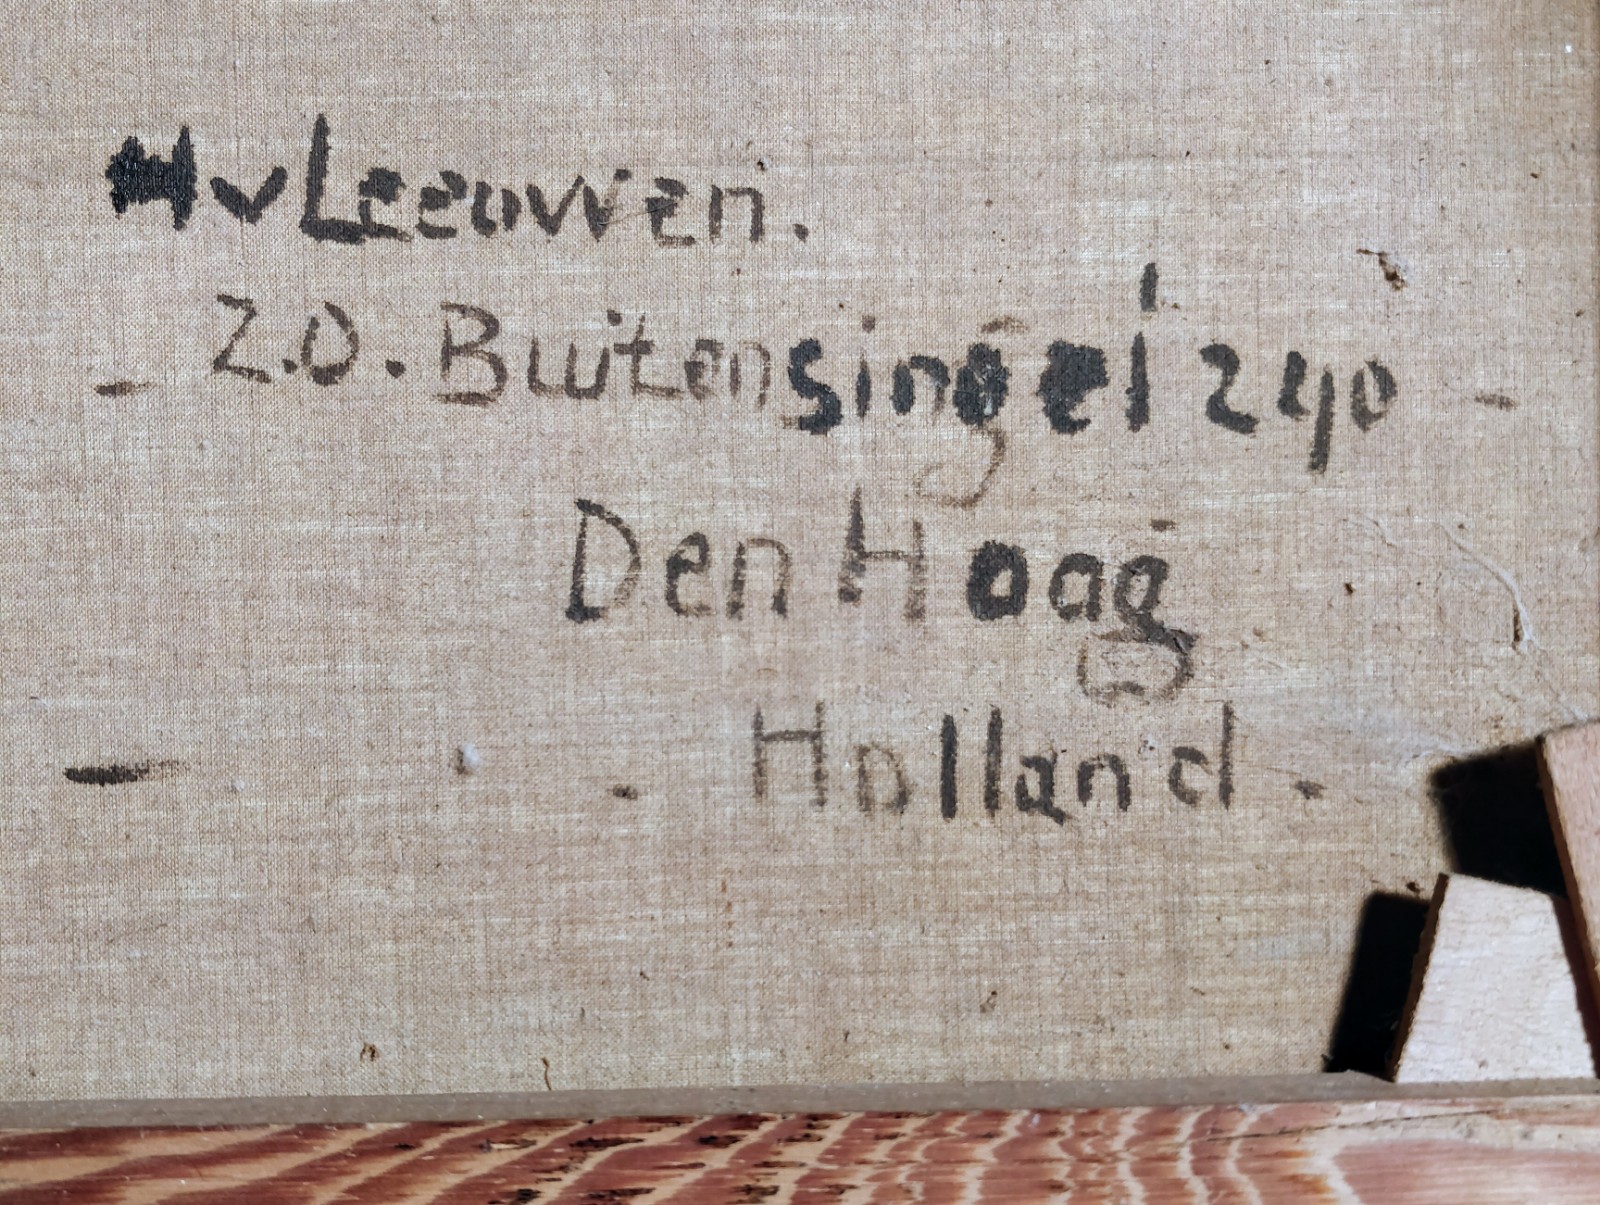 H v Leeuwen.
- Z.O. Buitensingel 240 -
Den Haag
- . Holland -